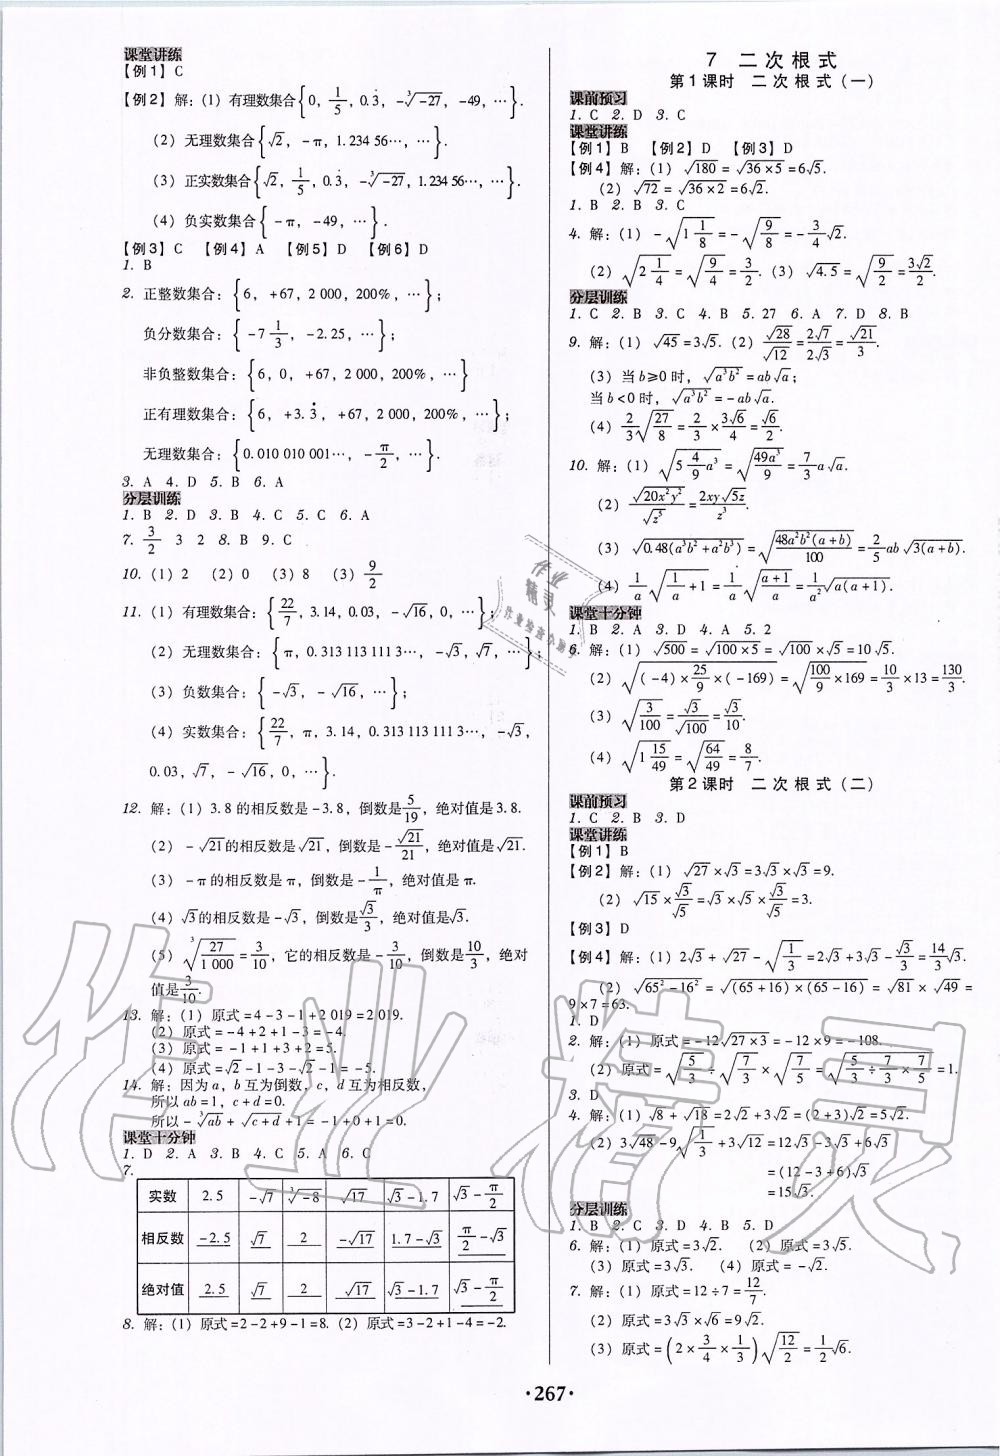 课堂讲练
【例1】C
【例2】解：(1) 有理数集合{0, 1/5, 0.3̇, -∛-27, -49, …}.
(2) 无理数集合{√2, -π, 1.234 56…, …}.
(3) 正实数集合{√2, 1/5, 0.3̇, -∛-27, 1.234 56…, …}.
(4) 负实数集合{-π, -49, …}.
【例3】C 【例4】A 【例5】D 【例6】D
1. B
2. 正整数集合：{6, +67, 2 000, 200%, …};
负分数集合：{-7 1/3, -2.25, …};
非负整数集合：{6, 0, +67, 2 000, 200%, …}
正有理数集合：{6, +3.3̇, +67, 2 000, 200%, …};
无理数集合：{0.010 010 001…, -π/2, …}.
3. A 4. D 5. B 6. A
分层训练
1. B 2. D 3. B 4. C 5. C 6. A
7. 3/2 3 2 8. B 9. C
10. (1) 2 (2) 0 (3) 8 (3) 9/2
11. (1) 有理数集合：{22/7, 3.14, 0.03, -√16, 0, …};
(2) 无理数集合：{π, 0.313 113 111 3…, -√3, √7, …};
(3) 负数集合：{-√3, -√16, …};
(4) 实数集合：{22/7, π, 3.14, 0.313 113 111 3…, -√3,
0.03, √7, -√16, 0, …}.
12. 解：(1) 3.8的相反数是-3.8, 倒数是5/19, 绝对值是3.8.
(2) -√21的相反数是√21, 倒数是-√21/21, 绝对值是√21.
(3) -π的相反数是π, 倒数是-1/π, 绝对值是π.
(4) √3的相反数是-√3, 倒数是√3/3, 绝对值是√3.
(5) ∛(27/1 000)=3/10, 它的相反数是-3/10, 倒数是10/3, 绝对
值是3/10.
13. 解：(1) 原式=4-3-1+2 019=2 019.
(2) 原式=-4+2+1-3=-4.
(3) 原式=-1+1+3+2=5.
(4) 原式=√2-1-3-√2-1=-5.
14. 解：因为a, b互为倒数, c, d互为相反数,
所以ab=1, c+d=0.
所以-∛ab+√(c+d)+1=-1+0+1=0.
课堂十分钟
1. D 2. A 3. B 4. C 5. A 6. C
7.
实数 2.5 -√7 ∛-8 √17 √3-1.7 √3-π/2
相反数 -2.5 √7 2 -√17 1.7-√3 π/2-√3
绝对值 2.5 √7 2 √17 √3-1.7 √3-π/2
8. 解：(1) 原式=2-2+9-1=8. (2) 原式=3-2+1-4=-2.
7 二次根式
第1课时 二次根式(一)
课前预习
1. C 2. D 3. C
课堂讲练
【例1】B 【例2】D 【例3】D
【例4】解：(1) √180=√(36×5)=6√5.
(2) √72=√(36×2)=6√2.
1. B 2. B 3. C
4. 解：(1) -√(1 1/8)=-√(9/8)=-3/4√2.
(2) √(2 1/4)=√(9/4)=3/2. (3) √4.5=√(9/2)=3√2/2.
分层训练
1. C 2. B 3. C 4. B 5. 27 6. A 7. D 8. B
9. 解：(1) √45=3√5. (2) √28/√12=2√7/2√3=√21/3.
(3) 当b≥0时, √(a³b²)=ab√a;
当b<0时, √(a³b²)=-ab√a.
(4) 2/3√(27/8)=2/3×3√6/4=√6/2.
10. 解：(1) √(5 4/9 a³)=√(49a³/9)=7/3 a√a.
(2) √(20x²y²)/√(z⁵)=2xy√(5z)/z³.
(3) √(0.48(a³b²+a²b³))=√(48a²b²(a+b)/100)=2/5 ab√(3(a+b)).
(4) 1/a√(1/a+1)=1/a√((a+1)/a)=1/a²√(a(a+1)).
课堂十分钟
1. B 2. A 3. D 4. A 5. 2
6. 解：(1) √500=√(100×5)=√100×√5=10√5.
(2) √((-4)×25/9×(-169))=√(100/9×169)=10/3×13=130/3.
(3) √(3/100)=√3/√100=√3/10.
(4) √(1 15/49)=√(64/49)=8/7.
第2课时 二次根式(二)
课前预习
1. C 2. B 3. D
课堂讲练
【例1】B
【例2】解：(1) √27×√3=3√3×√3=9.
(2) √15×√3/√5=√3×√5×√3/√5=3.
【例3】D
【例4】解：(1) 2√3+√27-√(1/3)=2√3+3√3-√3/3=14/3√3.
(2) √(65²-16²)=√((65+16)×(65-16))=√81×√49=
9×7=63.
1. D
2. 解：(1) 原式=-12√(27×3)=-12×9=-108.
(2) 原式=√(5/3)÷√(7/3)×√(7/5)=√(5/3÷7/3×7/5)=1.
3. D
4. 解：(1) √8+√18=2√2+3√2=(2+3)√2=5√2.
(2) 3√48-9√(1/3)+3√12=12√3-3√3+6√3
=(12-3+6)√3
=15√3.
分层训练
1. B 2. C 3. D 4. B 5. D
6. 解：(1) 原式=3√2. (2) 原式=3√5.
(3) 原式=3√3. (4) 原式=-√2.
7. 解：(1) 原式=12÷7=12/7.
(2) 原式=3√3×√6=9√2.
(3) 原式=(2×3/4×1/3)√(12/2)=1/2√6.
·267·
作业精灵